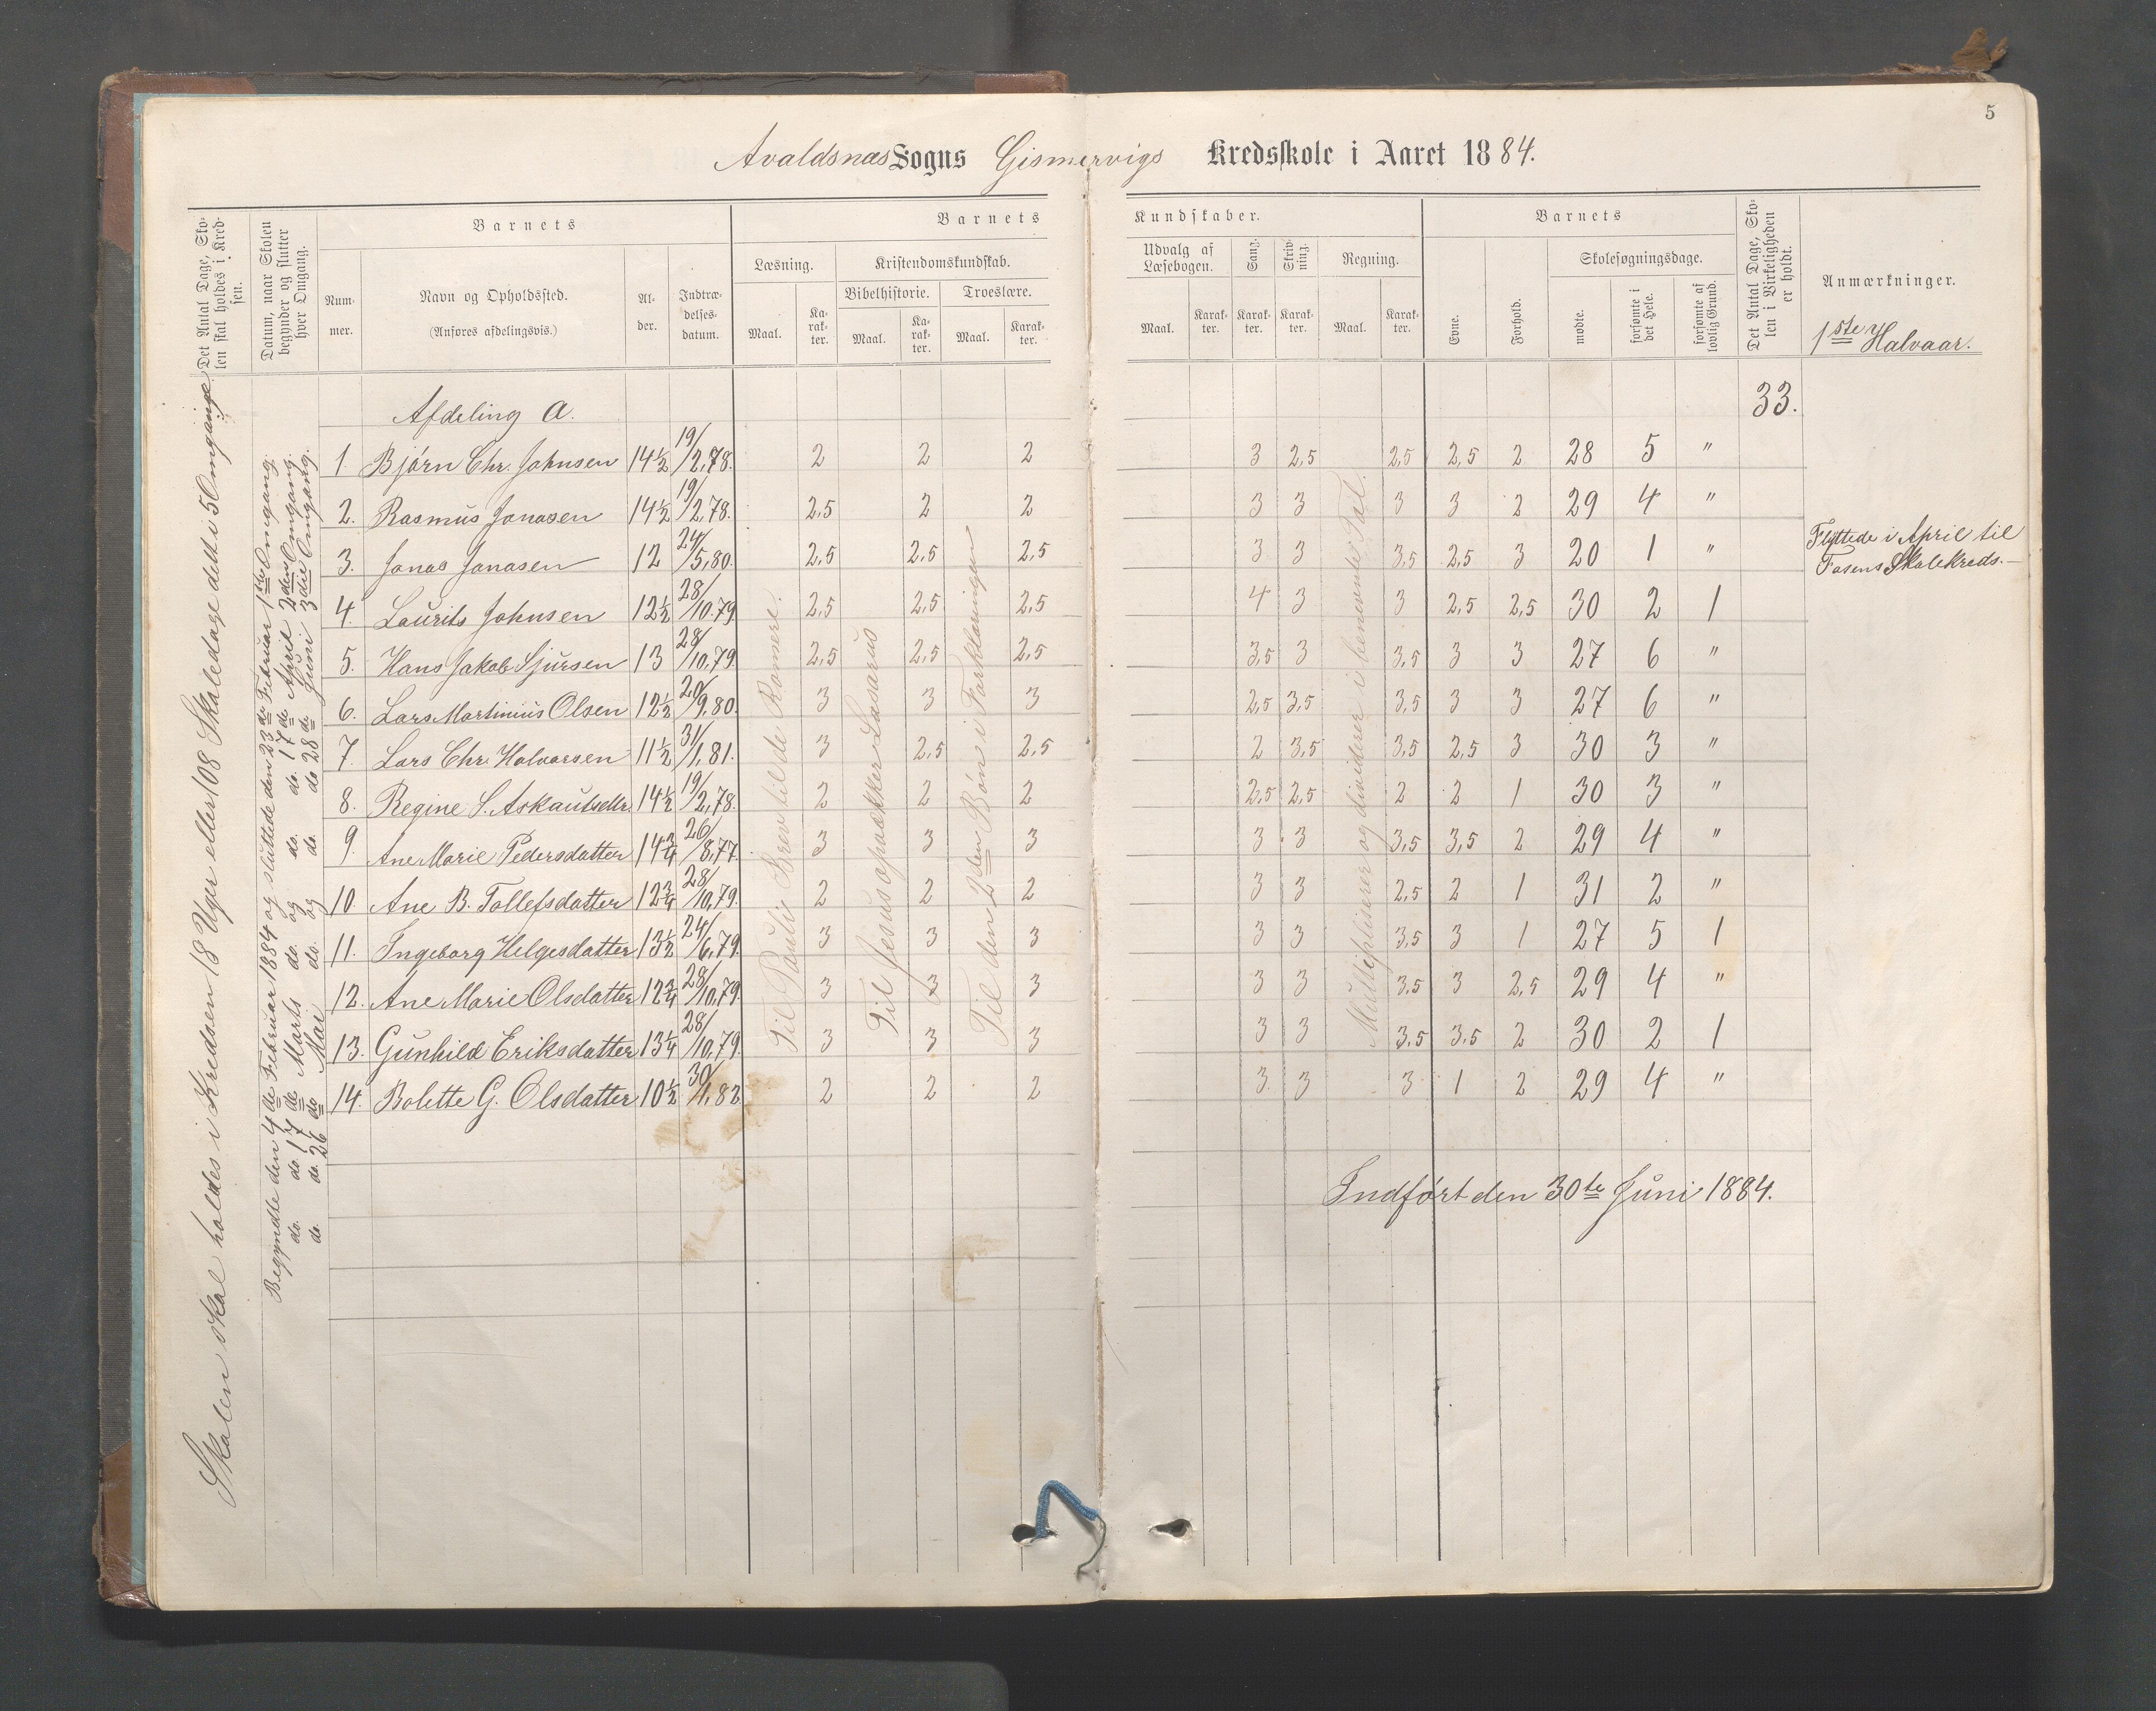 5
Avaldsnæs Sogns Gismervigs Kredsskole i Aaret 1884.
Det Antal Dage, Sko-
len skal holdes i Kred-
sen.
Datum, naar Skolen
begynder og slutter
hver Omgang.
Barnets
Num-
mer.
Navn og Opholdssted.
(Anføres afdelingsvis.)
Al-
der.
Indtræ-
delses-
datum.
Barnets
Læsning.
Maal.
Ka-
rak-
ter.
Kristendomskundskab.
Bibelhistorie.
Maal.
Ka-
rak-
ter.
Troeslære.
Maal.
Karak-
ter.
Kundskaber.
Udvalg af
Læsebogen.
Maal.
Karak-
ter.
Sang.
Karak-
ter.
Skriv-
ning.
Karak-
ter.
Regning.
Maal.
Karak-
ter.
Barnets
Evne.
Forhold.
Skolesøgningsdage.
mødte.
forsømte i
det Hele.
forsømte af
lovlig Grund.
Det Antal Dage, Sko-
len i Virkeligheden
er holdt.
Anmærkninger.
1ste Halvaar.
Skolen skal holdes i Kredsen 18 Uger eller 108 Skoledage delt i 5 Omgange.
Begyndte den 4de Februar 1884 og sluttede den 23de Februar 1ste Omgang.
do. do. 17de Marts do. og do. do. 17de April 2den Omgang.
do. do. 26de Mai do. og do. do. 28de Juni 3die Omgang.
Afdeling A. 33.
1 Bjørn Chr. Johnsen 14½ 19/2,78. 2 2 2 3 2,5 2,5 2,5 2 28 5 "
2. Rasmus Jonasen 14½ 19/2,78. 2,5 2 2 3 3 3 3 2 29 4 "
3. Jonas Jonasen 12 24/5,80. 2,5 2,5 2,5 3 3 3,5 2,5 3 20 1 " Flyttede i April til
Fosens Skolekreds.—
4. Laurits Johnsen 12½ 28/10.79. 2,5 2,5 2,5 4 3 3 2,5 2,5 30 2 1
5. Hans Jakob Sjursen 13 28/10,79. 2,5 2,5 2,5 3,5 3 3,5 3 3 27 6 "
6. Lars Martinius Olsen 12½ 20/9,80. 3 3 3 2,5 3,5 3,5 3 3 27 6 "
7. Lars Chr. Halvorsen 11½ 31/1,81. 3 2,5 2,5 2 3,5 3,5 2,5 3 30 3 "
8. Regine S. Askautsdtr. 14½ 19/2,78. 2 2 2 2,5 2,5 2 2 1 30 3 "
9. Ane Marie Pedersdatter 14¾ 26/8,77. 3 3 3 3 3 3,5 3,5 2 29 4 "
10. Ane B. Tollefsdatter 12¾ 28/10,79. 2 2 2 3 3 2,5 2 1 31 2 "
11. Ingeborg Helgesdatter 13½ 24/6,79. 3 3 3 3 3 3,5 3 1 27 5 1
12. Ane Marie Olsdatter 12¾ 28/10,79. 3 3 3 3 3 3.5 3 2,5 29 4 "
13. Gunhild Eriksdatter 13¼ 28/10,79. 3 3 3 3 3 3.5 3.5 2 30 2 1
14. Bolette G. Olsdatter 10½ 30/1,82 2 2 2 3 3 3 1 2 29 4 "
Til Pauli Brev til de Romere.
Til Jesus opvækker Lasarus
Til den 2den Bøn i Forklaringen
Multipliserer og dividerer i benevnte Tal.
Indført den 30te Juni 1884.